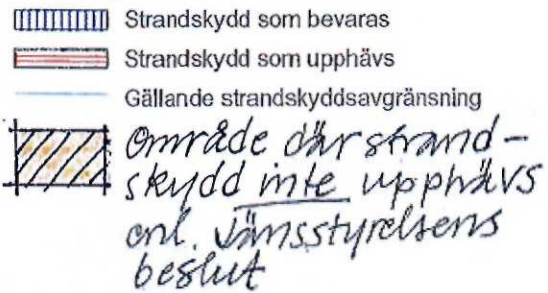 Strandskydd som bevaras
Strandskydd som upphävs
Gällande strandskyddsavgränsning
Område där strand-
skydd inte upphävs
enl. Länsstyrelsens
beslut